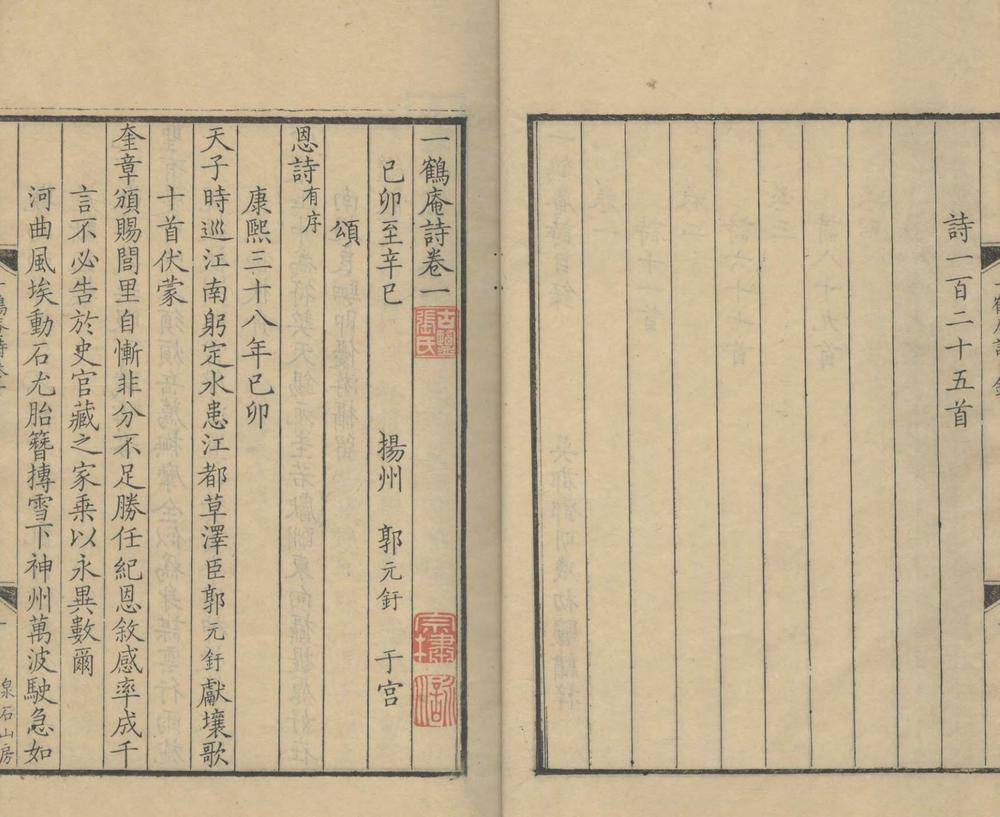 詩一百二十五首
一鶴庵詩卷一
己卯至辛巳 揚州 郭元釪 于宫
頌
恩詩有序
康熙三十八年己卯
天子時巡江南躬定水患江都草澤臣郭元釪獻壤歌
十首伏蒙
奎章頒賜閭里自慚非分不足勝任紀恩敘感率成千
言不必告於史官藏之家乗以永異數爾
河曲風埃動石尤胎簪摶雪下神州萬波駛急如
泉石山房